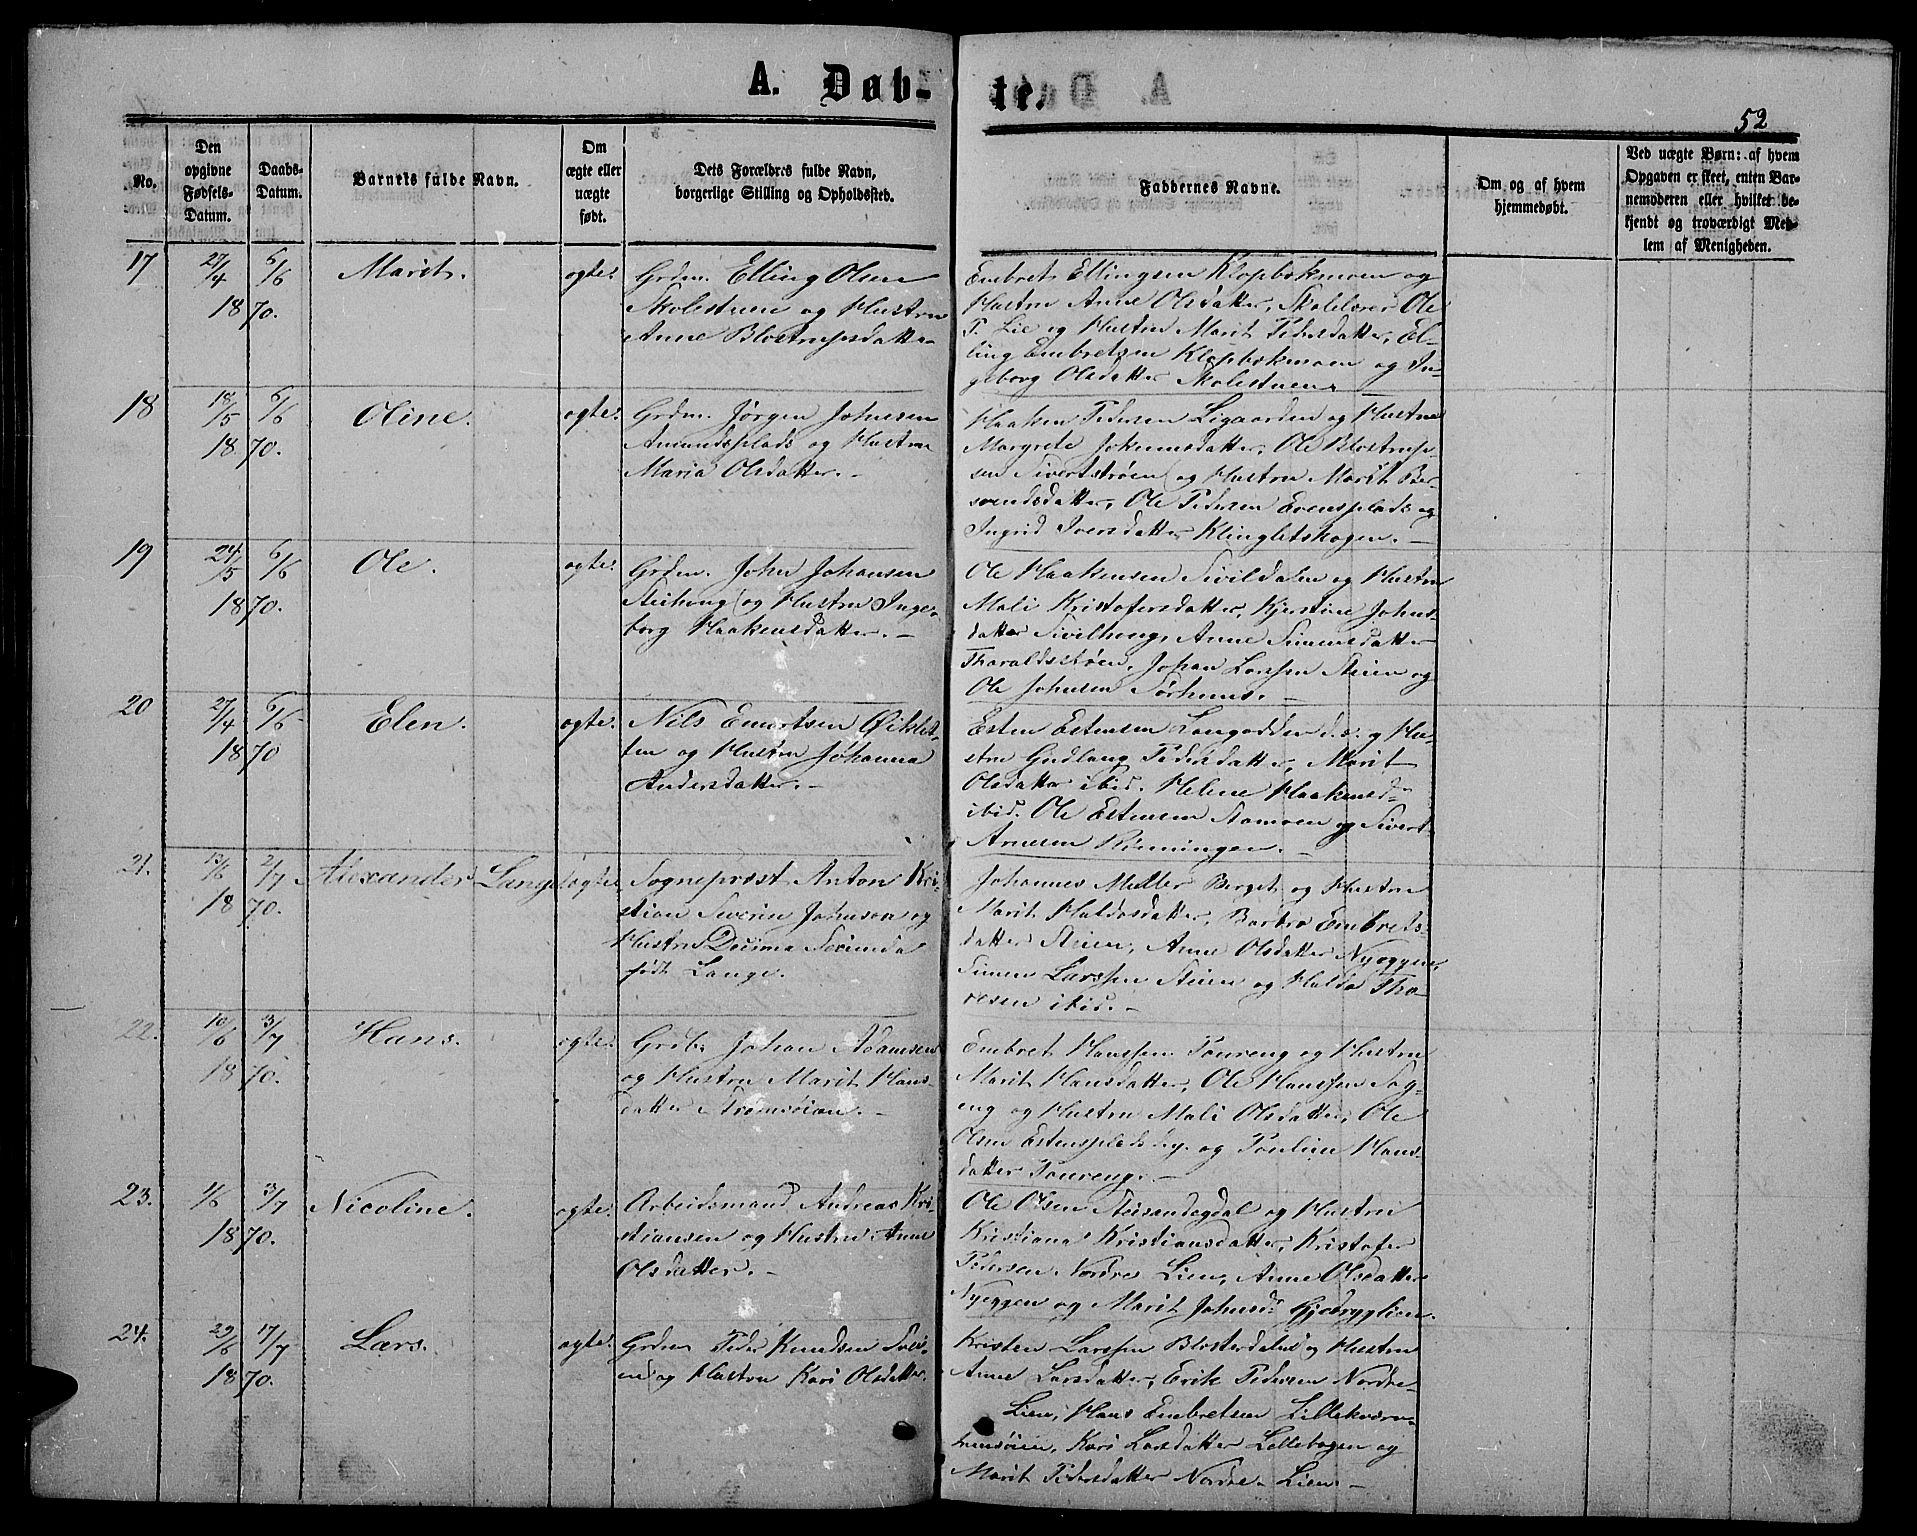 A. Døb-
te.
52
No.
Den
opgivne
Fødsels-
Datum.
Daabs-
Datum.
Barnets fulde Navn.
Om
ægte eller
uægte
født.
Dets Forældres fulde Navn,
borgerlige Stilling og Opholdssted.
Faddernes Navne.
Om og af hvem
hjemmedøbt.
Ved uægte Børn: af hvem
Opgaven er skeet, enten Bar-
nemoderen eller hvilket be-
kjendt og troværdigt Med-
lem af Menigheden.
17 27/4 1870. 6/6 Marit. ægte.
Grdm. Elling Olsen
Skolestuen og Hustru
Anne Blostrupsdatter
Embret Ellingsen Klopbakmoen og
Hustru Anne Olsdatter, Skolelærer Ole
P. Lie og Hustru Marit Pedersdatter, El-
ling Embretsen Klopbakmoen og In-
geborg Olsdatter Skolestuen.
18 18/5 1870. 6/6 Oline. ægte.
Grdm. Jørgen Johnsen
Amundsplads og Hustru
Maria Olsdatter.-
Haaken Pedersen Ligaarden og Hustru
Margrete Johannsdatter, Ole Blostrup-
sen Sivertstrøen og Hustru Marit Ber-
sendsdatter, Ole Pedersen Evensplads og
Ingrid Iversdatter Klingletskogen.-
19 24/5 1870. 6/6 Ole. ægte.
Grdm. John Johansen
og Hustru Inge-
borg Haakensdatter.-
Ole Haakensen Sivildalen og Hustru
Mali Kristofersdatter, Kjerstine Johns-
datter Sivilheng, Anne Simensdatter
Tharaldsstrøen, Johan Larssen Steien og
Ole Johnsen Sørhuus.-
20 27/4 1870 6/6 Elen. ægte.
Nils Emertsen
og Hustru Johanna
Andersdatter.-
Esten Estensen Langodden d.s. og Hu-
stru Gudlaug Pedersdatter, Marit
Olsdatter ibid. Helene Haakensd.
ibid. Ole Estensen Aamoen og Sivert
Arnesen Rønningen.-
21. 13/6 1870. 2/7 Alexander Lange ægte
Sogneprest Anton Kri-
stian Severin Johnson og
Hustru Decima Secunda
født Lange.
Johannes Møller Berget og Hustru
Marit Haldosdatter, Barbro Embrets-
datter Steien, Anne Olsdatter Nyeggen,
Simen Larssen Steien og Haldo Tho-
resen ibid.-
22. 10/6 1870. 3/7 Hans. ægte.
Grdb. Johan Adamsen
og Hustru Marit Hans-
datter Strømsøien.-
Embret Hanssen Toureng og Hustru
Marit Hansdatter, Ole Hanssen Sag-
eng og Hustru Mali Olsdatter, Ole
Olsen Estensplads hg. og Pauline Hans-
datter Toureng.-
23. 1/6 1870. 3/7 Nicoline. ægte.
Arbeidsmand Andreas Kri-
stiansen og Hustru Anne
Olsdatter.-
Ole Olsen og Hustru
Kristiana Kristiansdatter, Kristofer
Pedersen Nordre Lien, Anne Olsdatter
Nyeggen og Marit Johnsd. Gjelrygglien.
24. 29/6 1870. 17/7 Lars. ægte.
Grdm. Peder Knudsen
og Hustru Kari Olsdatter.
Kristen Larssen Blosterdalen og Hustru
Anne Larsdatter, Erik Pedersen Nordre
Lien, Hans Embretsen Lillekværn-
Kari Larsdatter Lillebogen og
Marit Pedersdatter Nordre Lien.-